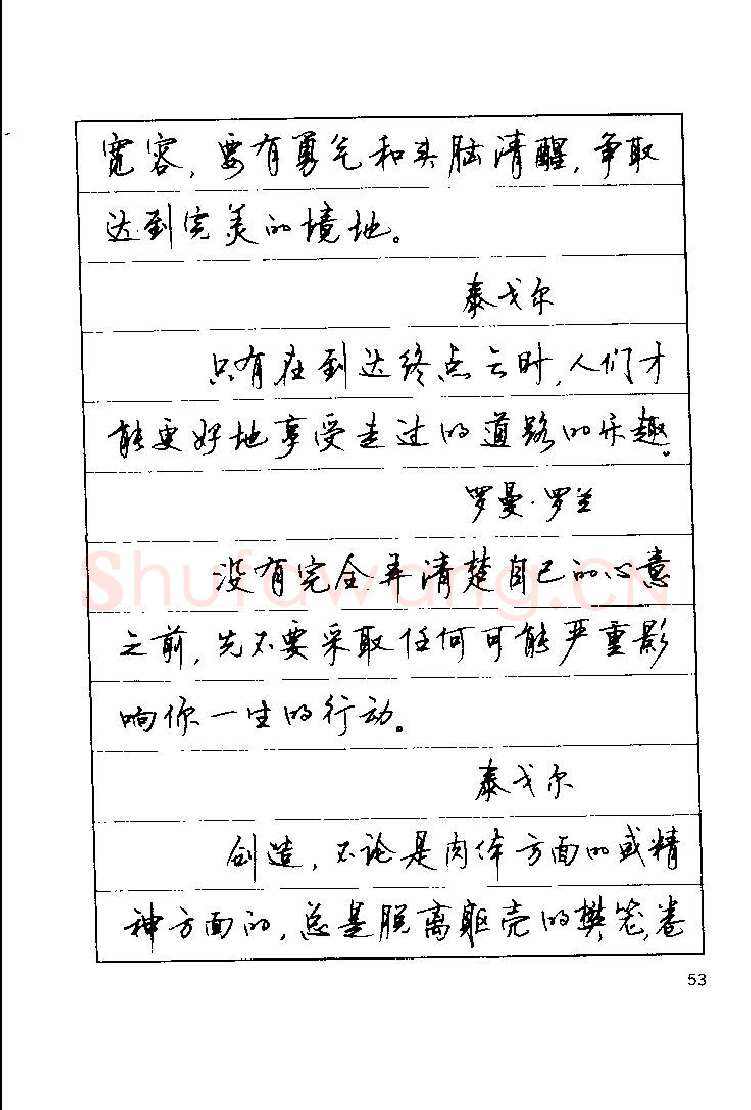 宽容，要有勇气和头脑清醒，争取
达到完美的境地。
泰戈尔
只有在到达终点之时，人们才
能更好地享受走过的道路的乐趣。
罗曼·罗兰
没有完全弄清楚自己的心意
之前，先不要采取任何可能严重影
响你一生的行动。
泰戈尔
创造，不论是肉体方面的或精
神方面的，总是脱离躯壳的樊笼，卷
53
Shufawang.CN